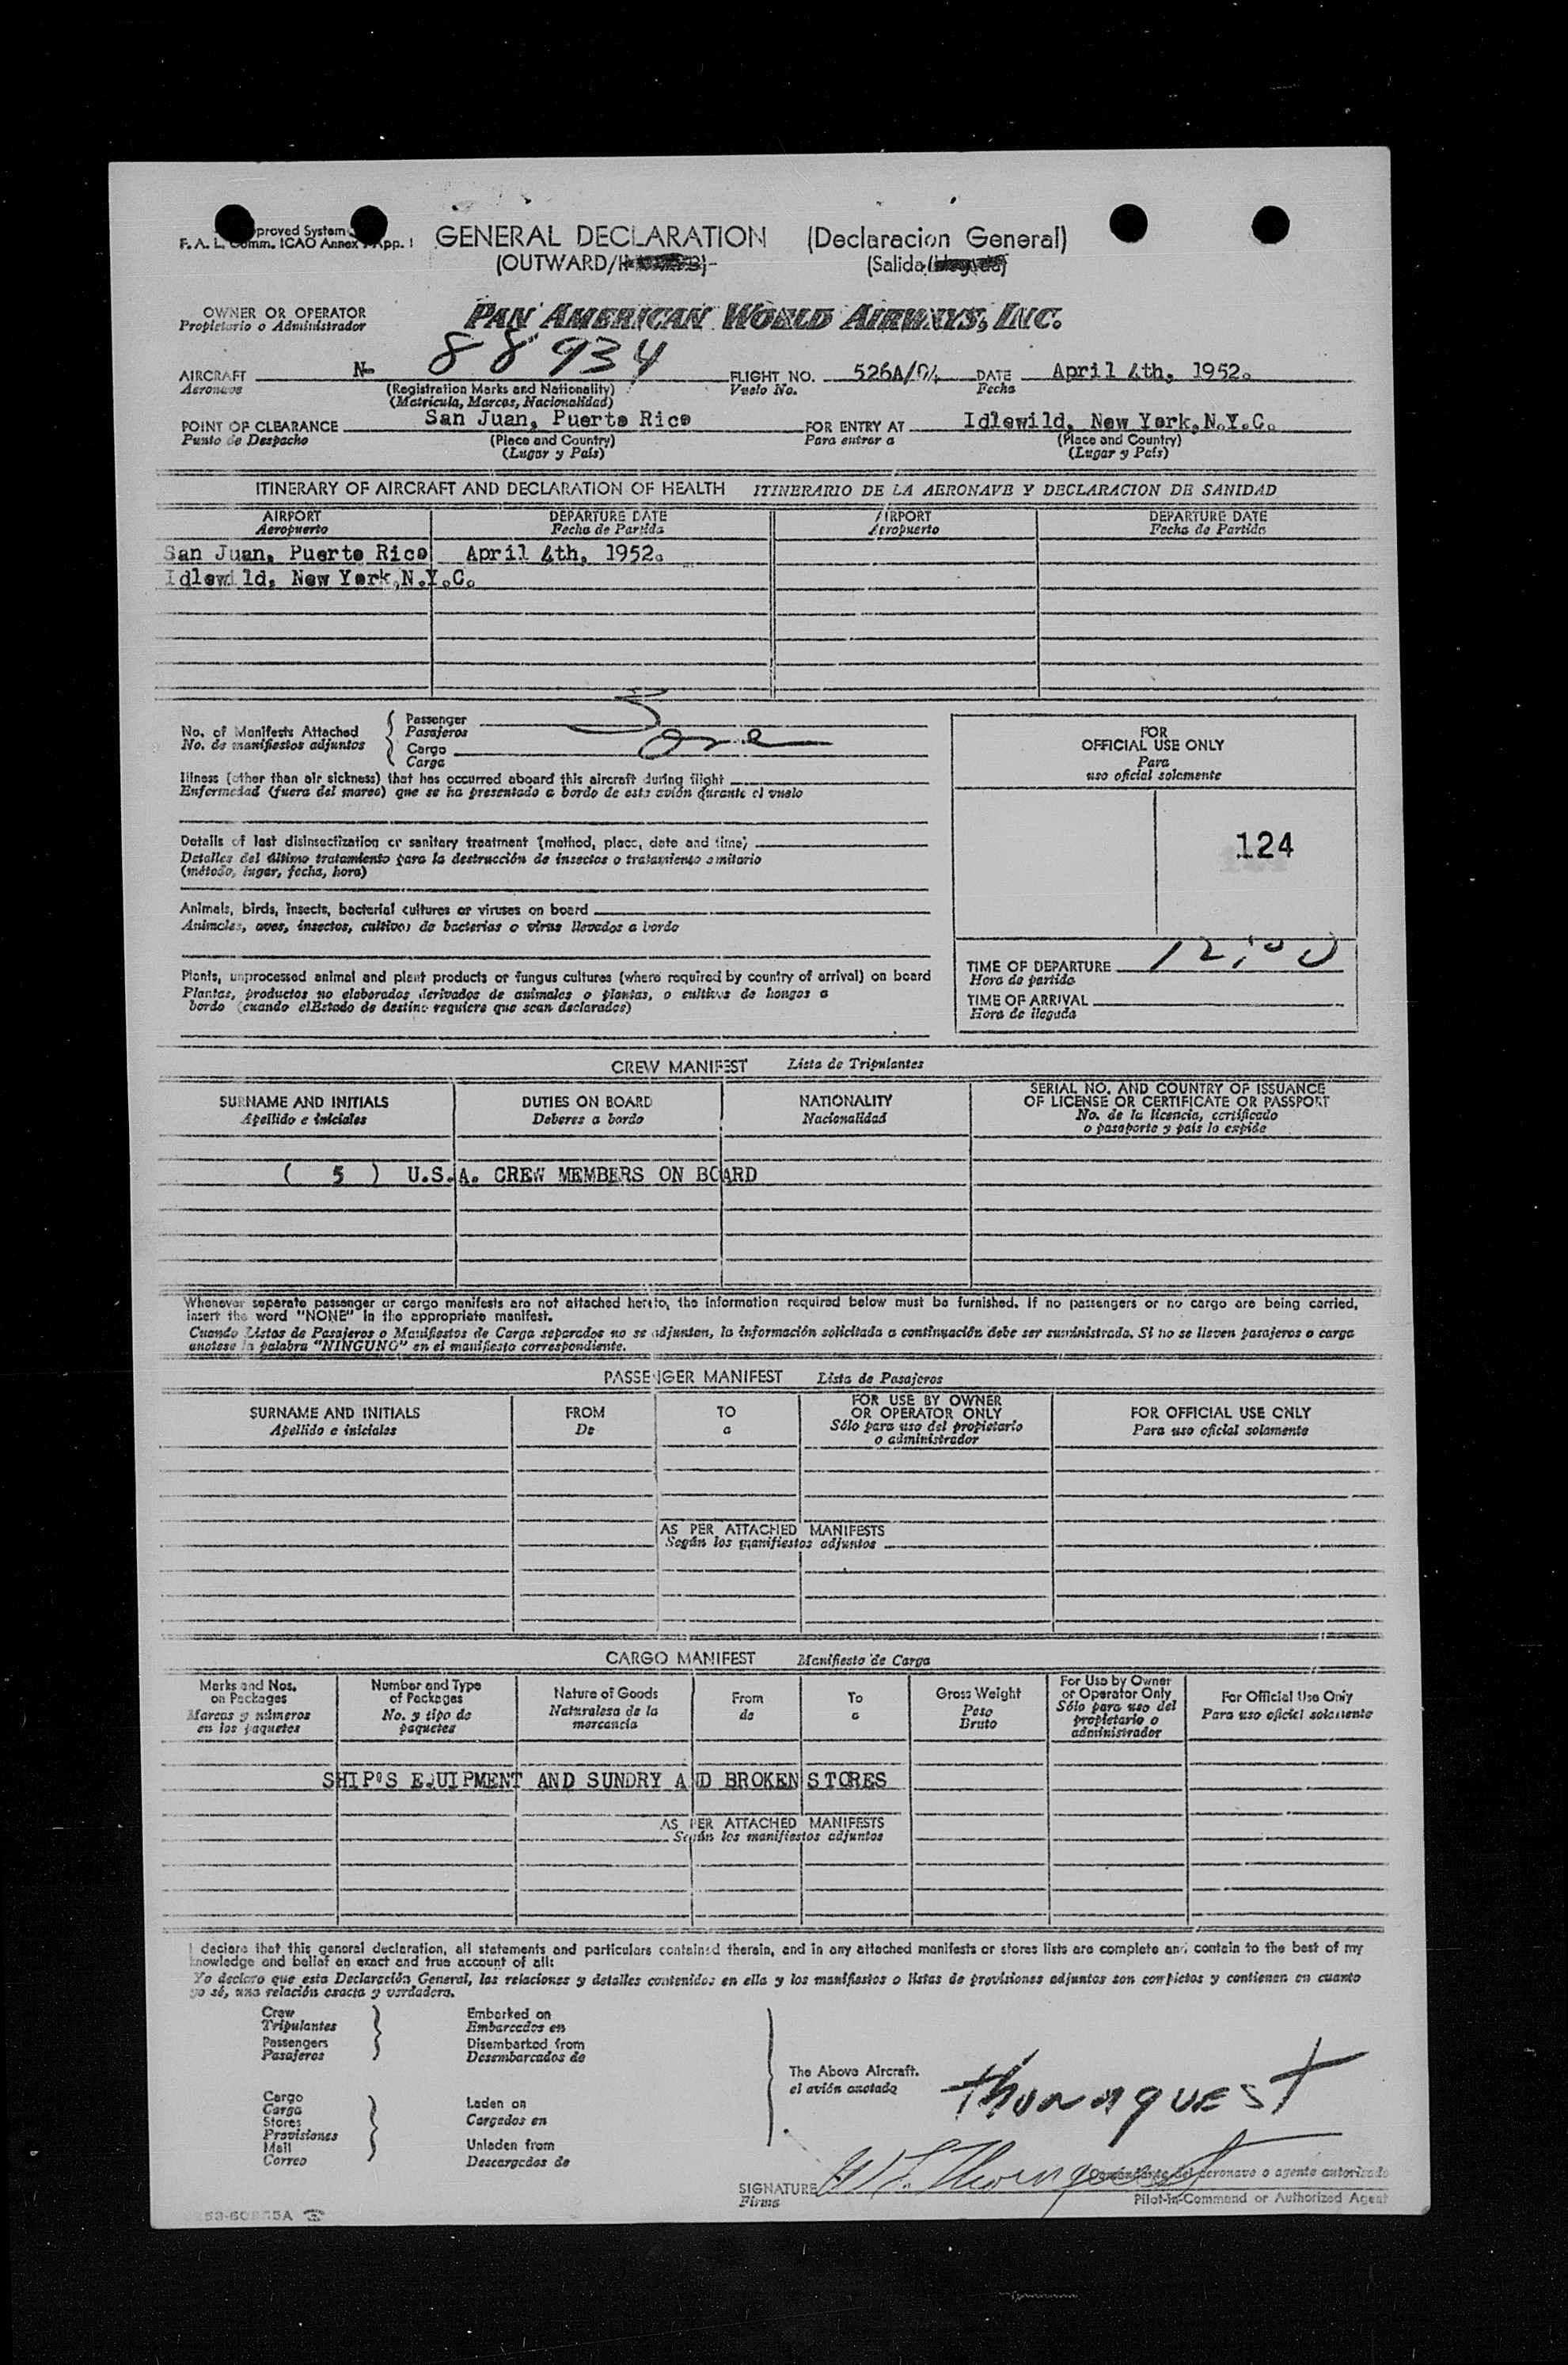 Approved System
F. A. L. Comm. ICAO Annex App. I
GENERAL DECLARATION (Declaracion General)
(OUTWARD/ (Salida
OWNER OR OPERATOR
Propietario o Administrador
PAN AMERICAN WORLD AIRWAYS, INC.
AIRCRAFT N- 88934 FLIGHT NO. 526A/04 DATE April 4th, 1952.
Aeronave (Registration Marks and Nationality) Vuelo No. Fecha
(Matricula, Marcas, Nacionalidad)
POINT OF CLEARANCE San Juan, Puerto Rico FOR ENTRY AT Idlewild, New York,N.Y.C.
Punto de Despacho (Place and Country) Para entrar a (Place and Country)
(Lugar y País) (Lugar y País)
ITINERARY OF AIRCRAFT AND DECLARATION OF HEALTH ITINERARIO DE LA AERONAVE Y DECLARACION DE SANIDAD
AIRPORT DEPARTURE DATE AIRPORT DEPARTURE DATE
Aeropuerto Fecha de Partida Aeropuerto Fecha de Partida
San Juan, Puerto Rico April 4th, 1952.
Idlewild, New York,N.Y.C.
No. of Manifests Attached
No. de manifiestos adjuntos
Passenger
Pasajeros
Cargo
Carga
Illness (other than air sickness) that has occurred aboard this aircraft during flight
Enfermedad (fuera del mareo) que se ha presentado a bordo de este avión durante el vuelo
Details of last disinsectization or sanitary treatment (method, place, date and time)
Detalles del último tratamiento para la destrucción de insectos o tratamiento sanitario
(método, lugar, fecha, hora)
Animals, birds, insects, bacterial cultures or viruses on board
Animales, aves, insectos, cultivos de bacterias o virus llevados a bordo
Plants, unprocessed animal and plant products or fungus cultures (where required by country of arrival) on board
Plantas, productos no elaborados derivados de animales o plantas, o cultivos de hongos a
bordo (cuando el Estado de destino requiere que sean declarados)
FOR
OFFICIAL USE ONLY
Para
uso oficial solamente
124
TIME OF DEPARTURE 12:00
Hora de partida
TIME OF ARRIVAL
Hora de llegada
CREW MANIFEST Lista de Tripulantes
SURNAME AND INITIALS DUTIES ON BOARD NATIONALITY SERIAL NO. AND COUNTRY OF ISSUANCE
OF LICENSE OR CERTIFICATE OR PASSPORT
Apellido e iniciales Deberes a bordo Nacionalidad No. de la licencia, certificado
o pasaporte y país lo expide
( 5 ) U.S.A. CREW MEMBERS ON BOARD
Whenever separate passenger or cargo manifests are not attached hereto, the information required below must be furnished. If no passengers or no cargo are being carried,
insert the word "NONE" in the appropriate manifest.
Cuando Listas de Pasajeros o Manifiestos de Carga separados no se adjunten, la información solicitada a continuación debe ser suministrada. Si no se lleven pasajeros o carga
anotese la palabra "NINGUNO" en el manifiesto correspondiente.
PASSENGER MANIFEST Lista de Pasajeros
SURNAME AND INITIALS FROM TO FOR USE BY OWNER
OR OPERATOR ONLY FOR OFFICIAL USE ONLY
Apellido e iniciales De a Sólo para uso del propietario
o administrador Para uso oficial solamente
AS PER ATTACHED MANIFESTS
Según los manifiestos adjuntos
CARGO MANIFEST Manifiesto de Carga
Marks and Nos.
on Packages
Marcas y números
en los paquetes
Number and Type
of Packages
No. y tipo de
paquetes
Nature of Goods
Naturalesa de la
mercancía
From
de
To
a
Gross Weight
Peso
Bruto
For Use by Owner
or Operator Only
Sólo para uso del
propietario o
administrador
For Official Use Only
Para uso oficial solamente
SHIP'S EQUIPMENT AND SUNDRY AND BROKEN STORES
AS PER ATTACHED MANIFESTS
Según los manifiestos adjuntos
I declare that this general declaration, all statements and particulars contained therein, and in any attached manifests or stores lists are complete and contain to the best of my
knowledge and belief an exact and true account of all:
Yo declaro que esta Declaración General, las relaciones y detalles contenidos en ella y los manifiestos o listas de provisiones adjuntos son completos y contienen en cuanto
yo sé, una relación exacta y verdadera.
Crew
Tripulantes
Passengers
Pasajeros
Embarked on
Embarcados en
Disembarked from
Desembarcados de
Cargo
Carga
Stores
Provisiones
Mail
Correo
Laden on
Cargados en
Unladen from
Descargados de
The Above Aircraft.
el avión anotado
Thornquest
SIGNATURE W L Thornquest
Firma
Comandante del aeronave o agente autorizado
Pilot-in-Command or Authorized Agent